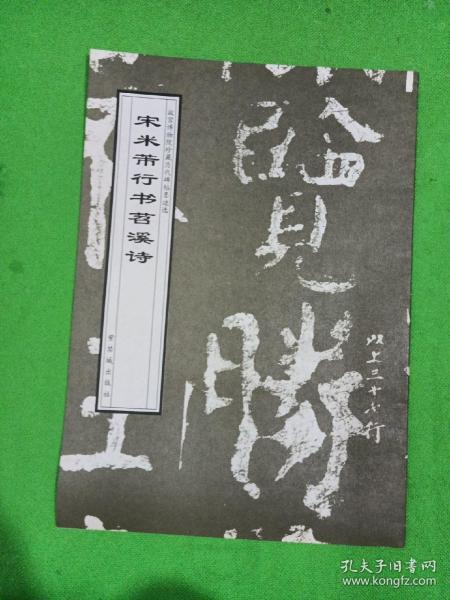 故宫博物院珍藏历代碑帖墨迹选
宋米芾行书苕溪诗
紫禁城出版社
览胜
以上三十六行
孔夫子旧书网
www.kongfz.com